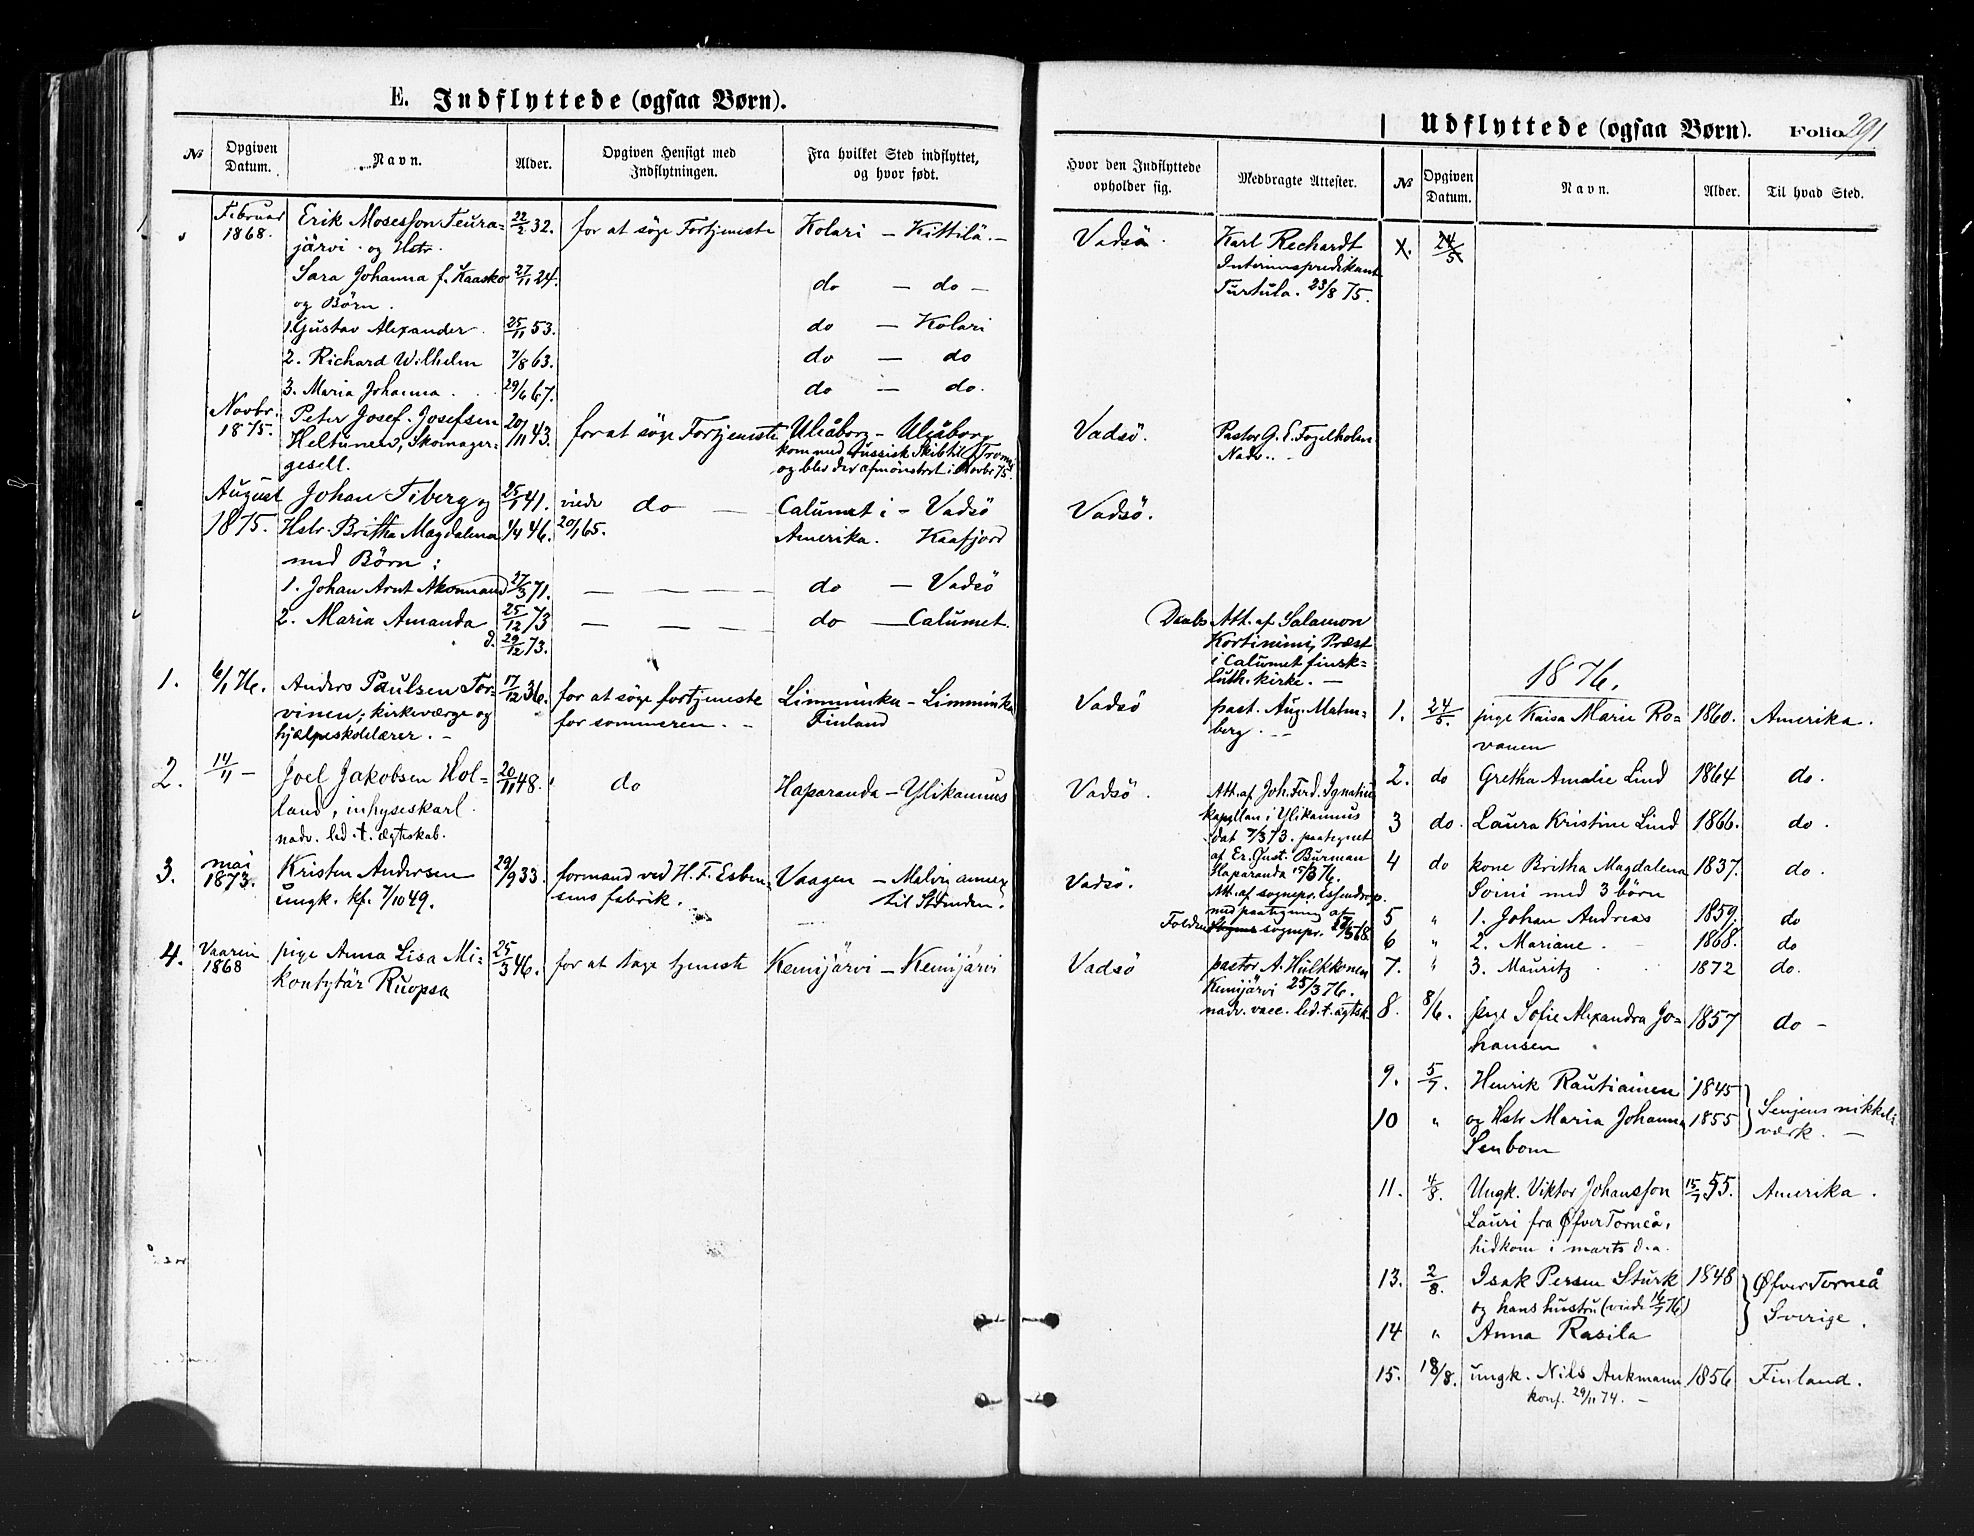 E. Indflyttede (ogsaa Børn).
№
Opgiven Datum.
Navn.
Alder.
Opgiven Hensigt med Indflytningen.
Fra hvilket Sted indflyttet, og hvor født.
Hvor den Indflyttede opholder sig.
Medbragte Attester.
Februar Erik Mosesson Teura- 22/2 32. for at söge Fortjeneste Kolari – Kittilä. – Vadsö. Karl Rechardt
1868. järvi og Hstr. Interimspredikant
Sara Johanna f. Kaasko 27/11 24. do – do – Turtula. 23/8 75.
og Børn.
1. Gustav Alexander 25/11 53. do – Kolari
2. Richard Wilhelm 7/8 63. do – do
3. Maria Johanna 29/6 67. do – do.
Novbr. Peter Josef Josefsen 20/11 43. for at söge Fortjeneste Uleåborg – Uleåborg Vadsö. Pastor G. E. Fogelholm
1875. Heltunen, Skomager- kom med russisk Skib til Tromsø Nadv.
gesell. og blev der afmönstret i Novbr 75.
August Johan Tiberg og 25/1 41. viede do – Calumet i – Vadsö Vadsö.
1875. Hstr. Britha Magdalena 1/4 46. 20/1 65. Amerika. Kaafjord
med Børn:
1. Johan Arnt Nkomand 27/3 71. – – – – do – Vadsö
2. Maria Amanda 25/12 73 – – – – do – Calumet. Daabs Att. af Salamon
d. 29/12 73. Kortiniemi, Præst
i Calumet finsk-
luth. kirke. –
1. 6/1 76. Anders Paulsen Tor- 17/12 36. for at söge fortjeneste Limminka – Limminka Vadsö past. Aug. Malm-
vinen, kirkeværge og for sommeren. – Finland berg. –
hjælpeskolelærer. –
2. 14/11 – Joel Jakobsen Hol- 20/11 48. do Haparanda – Ylikannus Vadsö. Att. af Joh. Ferd. Ignatius
land, inhyseskarl kapellan i Ylikannus
nadv. led. t. ægteskab. dat 7/3 73. paategnet
af Er. Gust. Burman
Haparanda 15/3 76.
3. mai Kristen Andersen 29/9 33. formand ved H. F. Esben- Vaagen – Malvig annex Vadsö. Att. af sognepr. Esjendrop.
1873. ungk. kf. 7/10 49. sens fabrik. til Strinden. med paategning af
Folden sognepr. 29/5 68.
4. Vaaren pige Anna Lisa Mi- 25/3 46. for at tage tjeneste Kemijärvi – Kemijärvi Vadsö pastor A. Hulkkonen
1868 kontytär Ruopsa Kemijärvi 25/3 76.
nadv. vacc. led. t. ægtsk.
Udflyttede (ogsaa Børn). Folio 291
№
Opgiven Datum.
Navn.
Alder.
Til hvad Sted.
X. 24/5
1876.
1. 24/5. pige Kaisa Marie Ro- 1860. Amerika.
vanen
2. do Gretha Amalie Lind 1864 do.
3 do. Laura Kristine Lind 1866. do.
4 do kone Britha Magdalena 1837. do.
Soini med 3 børn
5 " 1. Johan Andreas 1859. do
6 " 2. Mariane 1868. do
7. " 3. Mauritz 1872 do.
8. 8/6. pige Sofie Alexandra Jo- 1857 do –
hansen
9. 5/7. Henrik Rautiainen 1845 Senjens nikkel-
10 " og Hstr Maria Johanna 1855 værk. –
Senbom
11. 4/8. Ungk. Viktor Johansson 15/7 55. Amerika.
Lauri fra Øfver Torneå,
hidkom i marts d.a.
13. 2/8. Isak Persen Sturk 1848 Øfver Torneå
og hans hustru (viede 16/7 76) Sverige.
14 " Anna Rasila
15. 18/8. ungk. Nils Ankmann 1856 Finland.
konf. 29/11 74. –